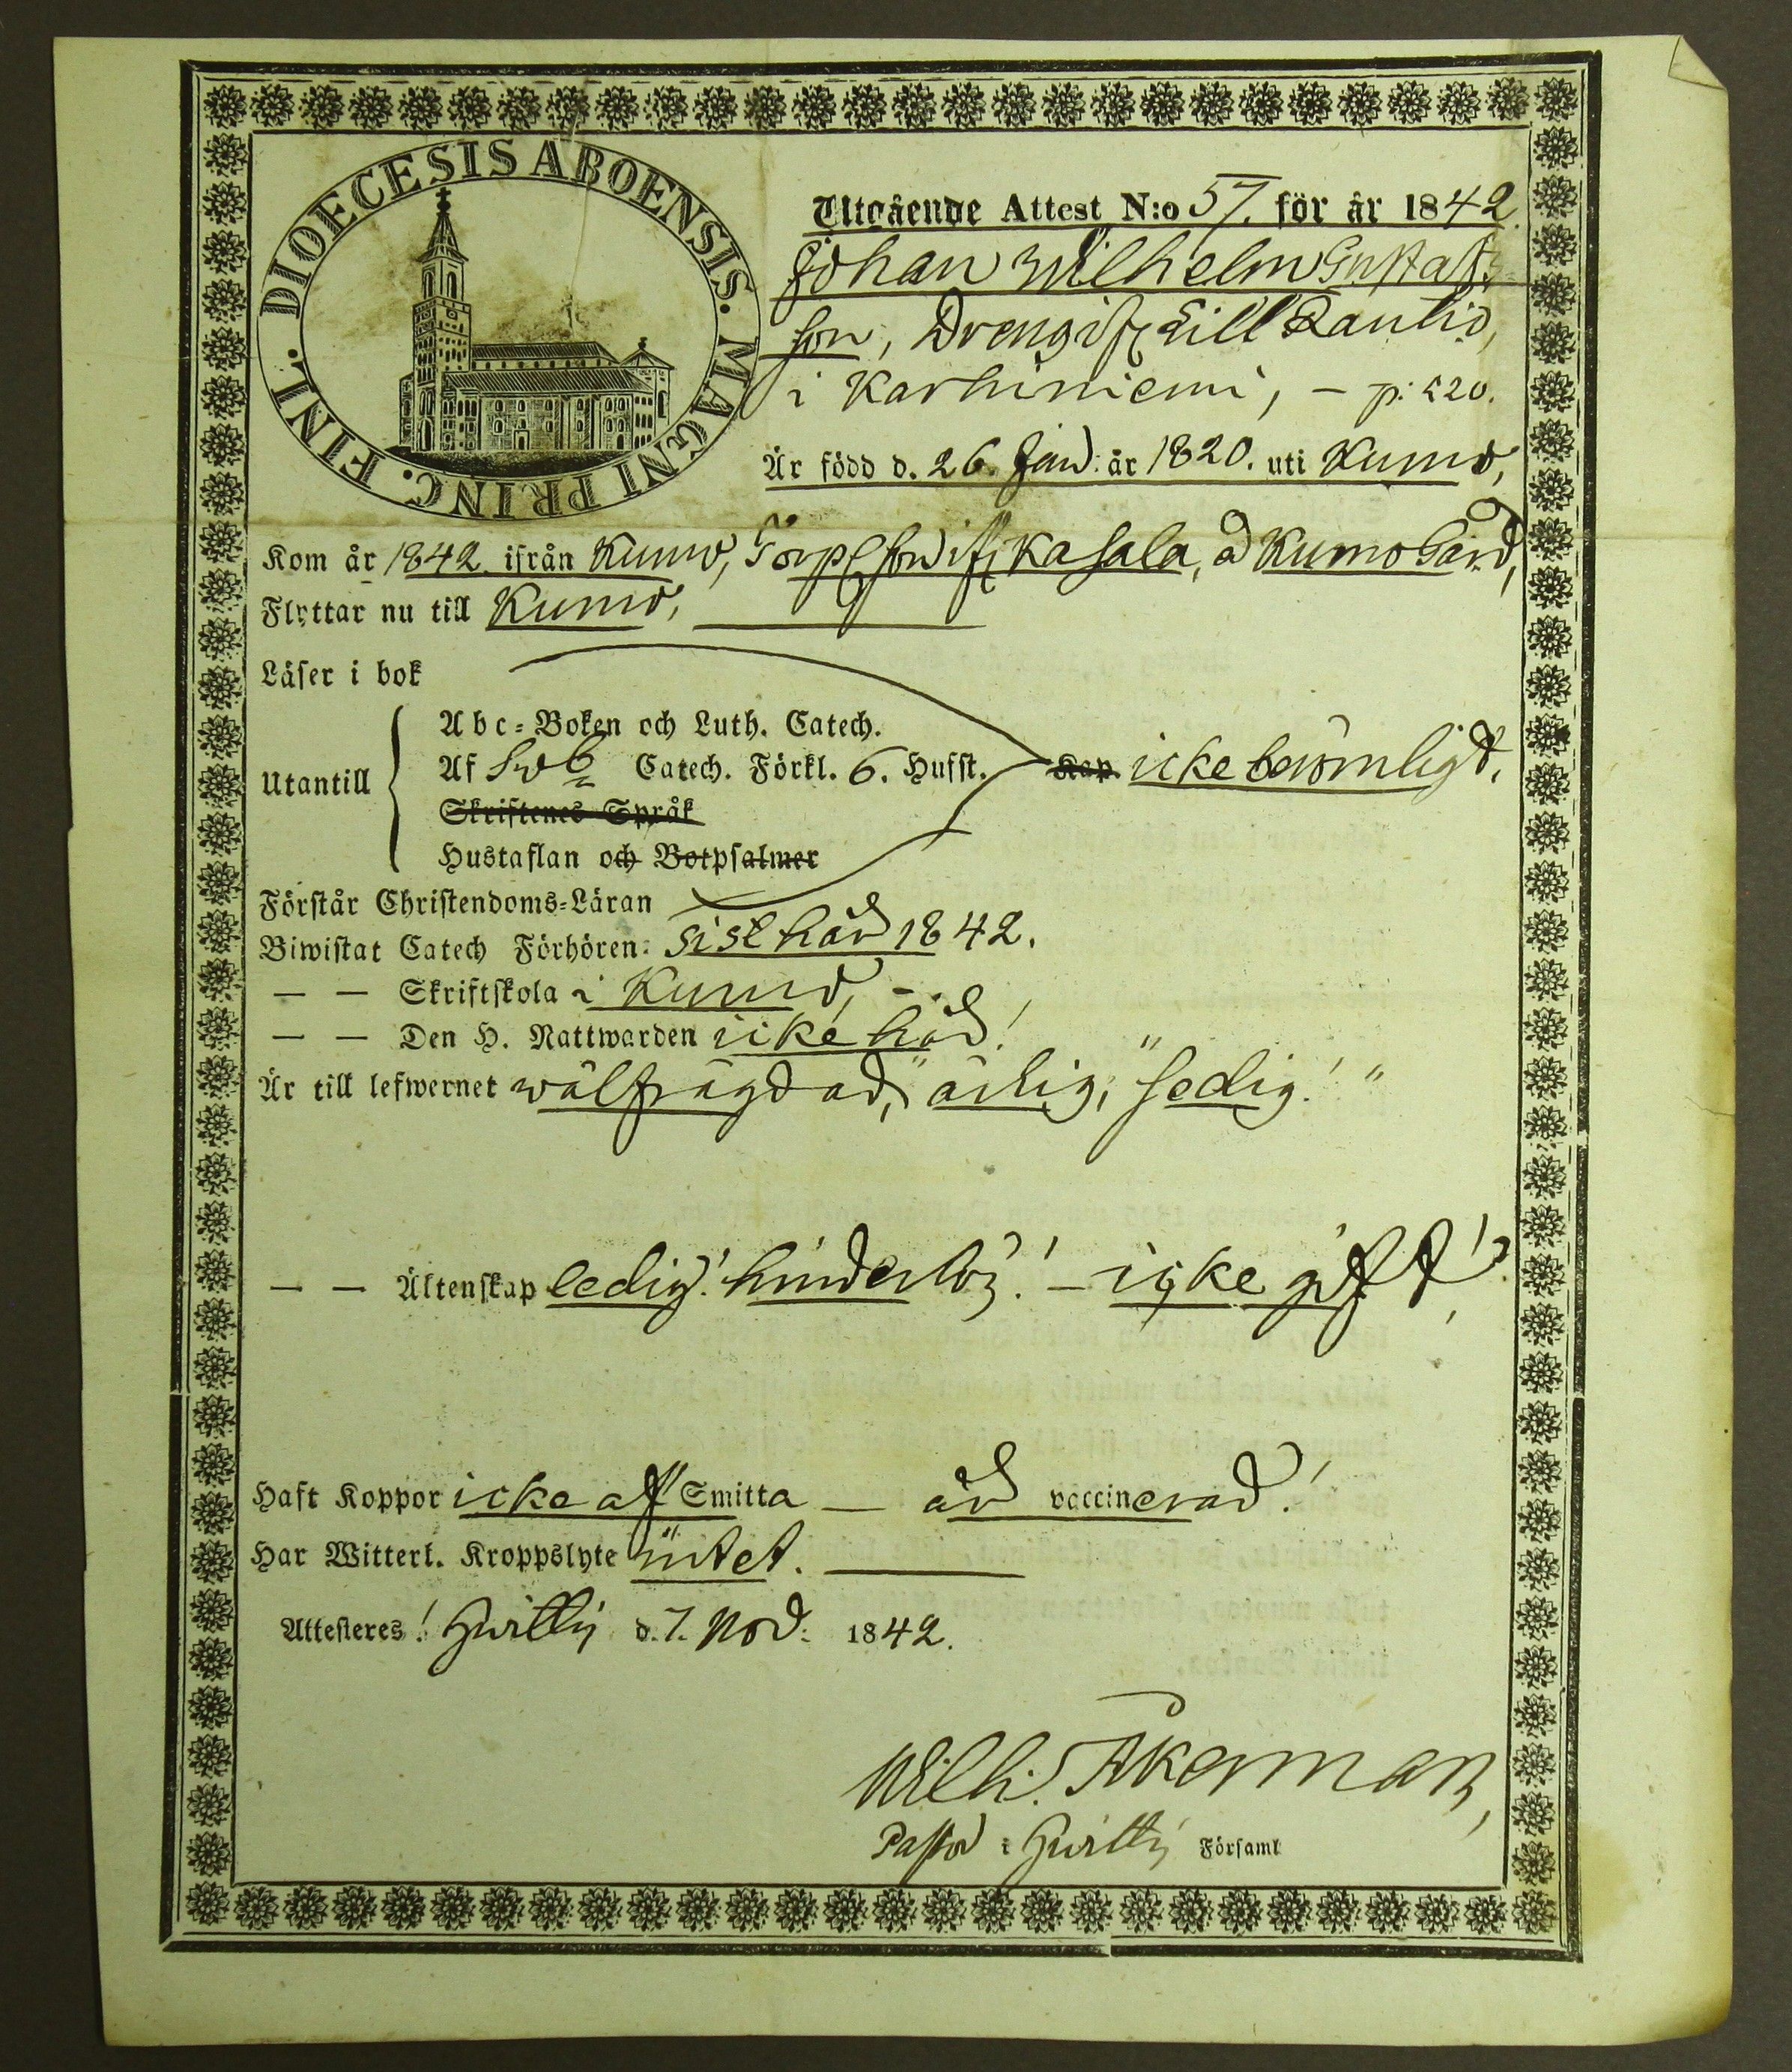 DIOECESIS ÅBOENSIS. MAGNI PRINC. FINL.
Utgående Attest N:o 57. för år 1842.
Johan Wilhelm Gustafs-
son, Dreng till Rautio,
i Karhiniemi, – p. 220.
Är född d. 26. Jan: år 1820. uti Kumo,
Kom år 1842. ifrån Kumo, Kasala, Kumo Gård,
Flyttar nu till Kumo,
Läser i bok
Utantill
Abc-Boken och Luth. Catech.
Af Sveb. Catech. Förkl. 6. Hufst. Kap. icke berömligt.
Skriftenes Språk
Hustaflan och Botpsalmer
Förstår Christendoms-Läran
Biwistat Catech Förhören: sist här 1842.
— — Skriftskola i Kumo, –
— — Den H. Nattwarden icke här!
Är till lefwernet wälfrägdad, "ärlig, "sedig! "
— — Äktenskap ledig! hinderlös! – icke gift!
Haft Koppor icke af Smitta — är vaccinerad!
Har Witterl. Kroppslyte intet.
Attesteres! Hvittis d. 7. Nov: 1842.
Wilh. Åkerman,
Pastor i Hvittis Församl